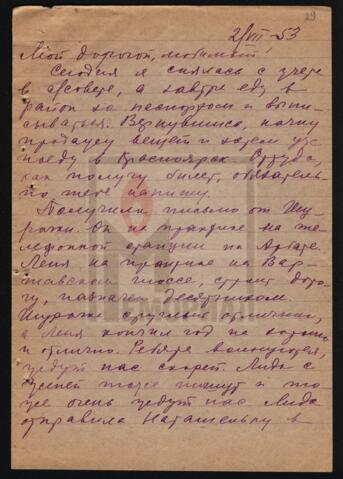 29
2/VII-53
Мой дорогой, любимый!
Сегодня я снялась с учета
в с/совете, а завтра еду в
район за паспортом и выпи-
сываться. Вернувшись, начну
продажу вещей и затем уж
поеду в Красноярск. Оттуда,
как получу билет, обязатель-
но тебе напишу.
Получили письмо от Шу-
рожи. Он на практике на те-
лефонной станции на Арбате.
Леня на практике на Вар-
шавском шоссе, строит доро-
гу, назначен десятником.
круглый отличник,
а Леня кончил год на хорошо
и отлично. Ребята волнуются,
ждут нас скорей. Лида с
тоже пишут и то-
же очень ждут нас. Лида
отправила Наташеньку в